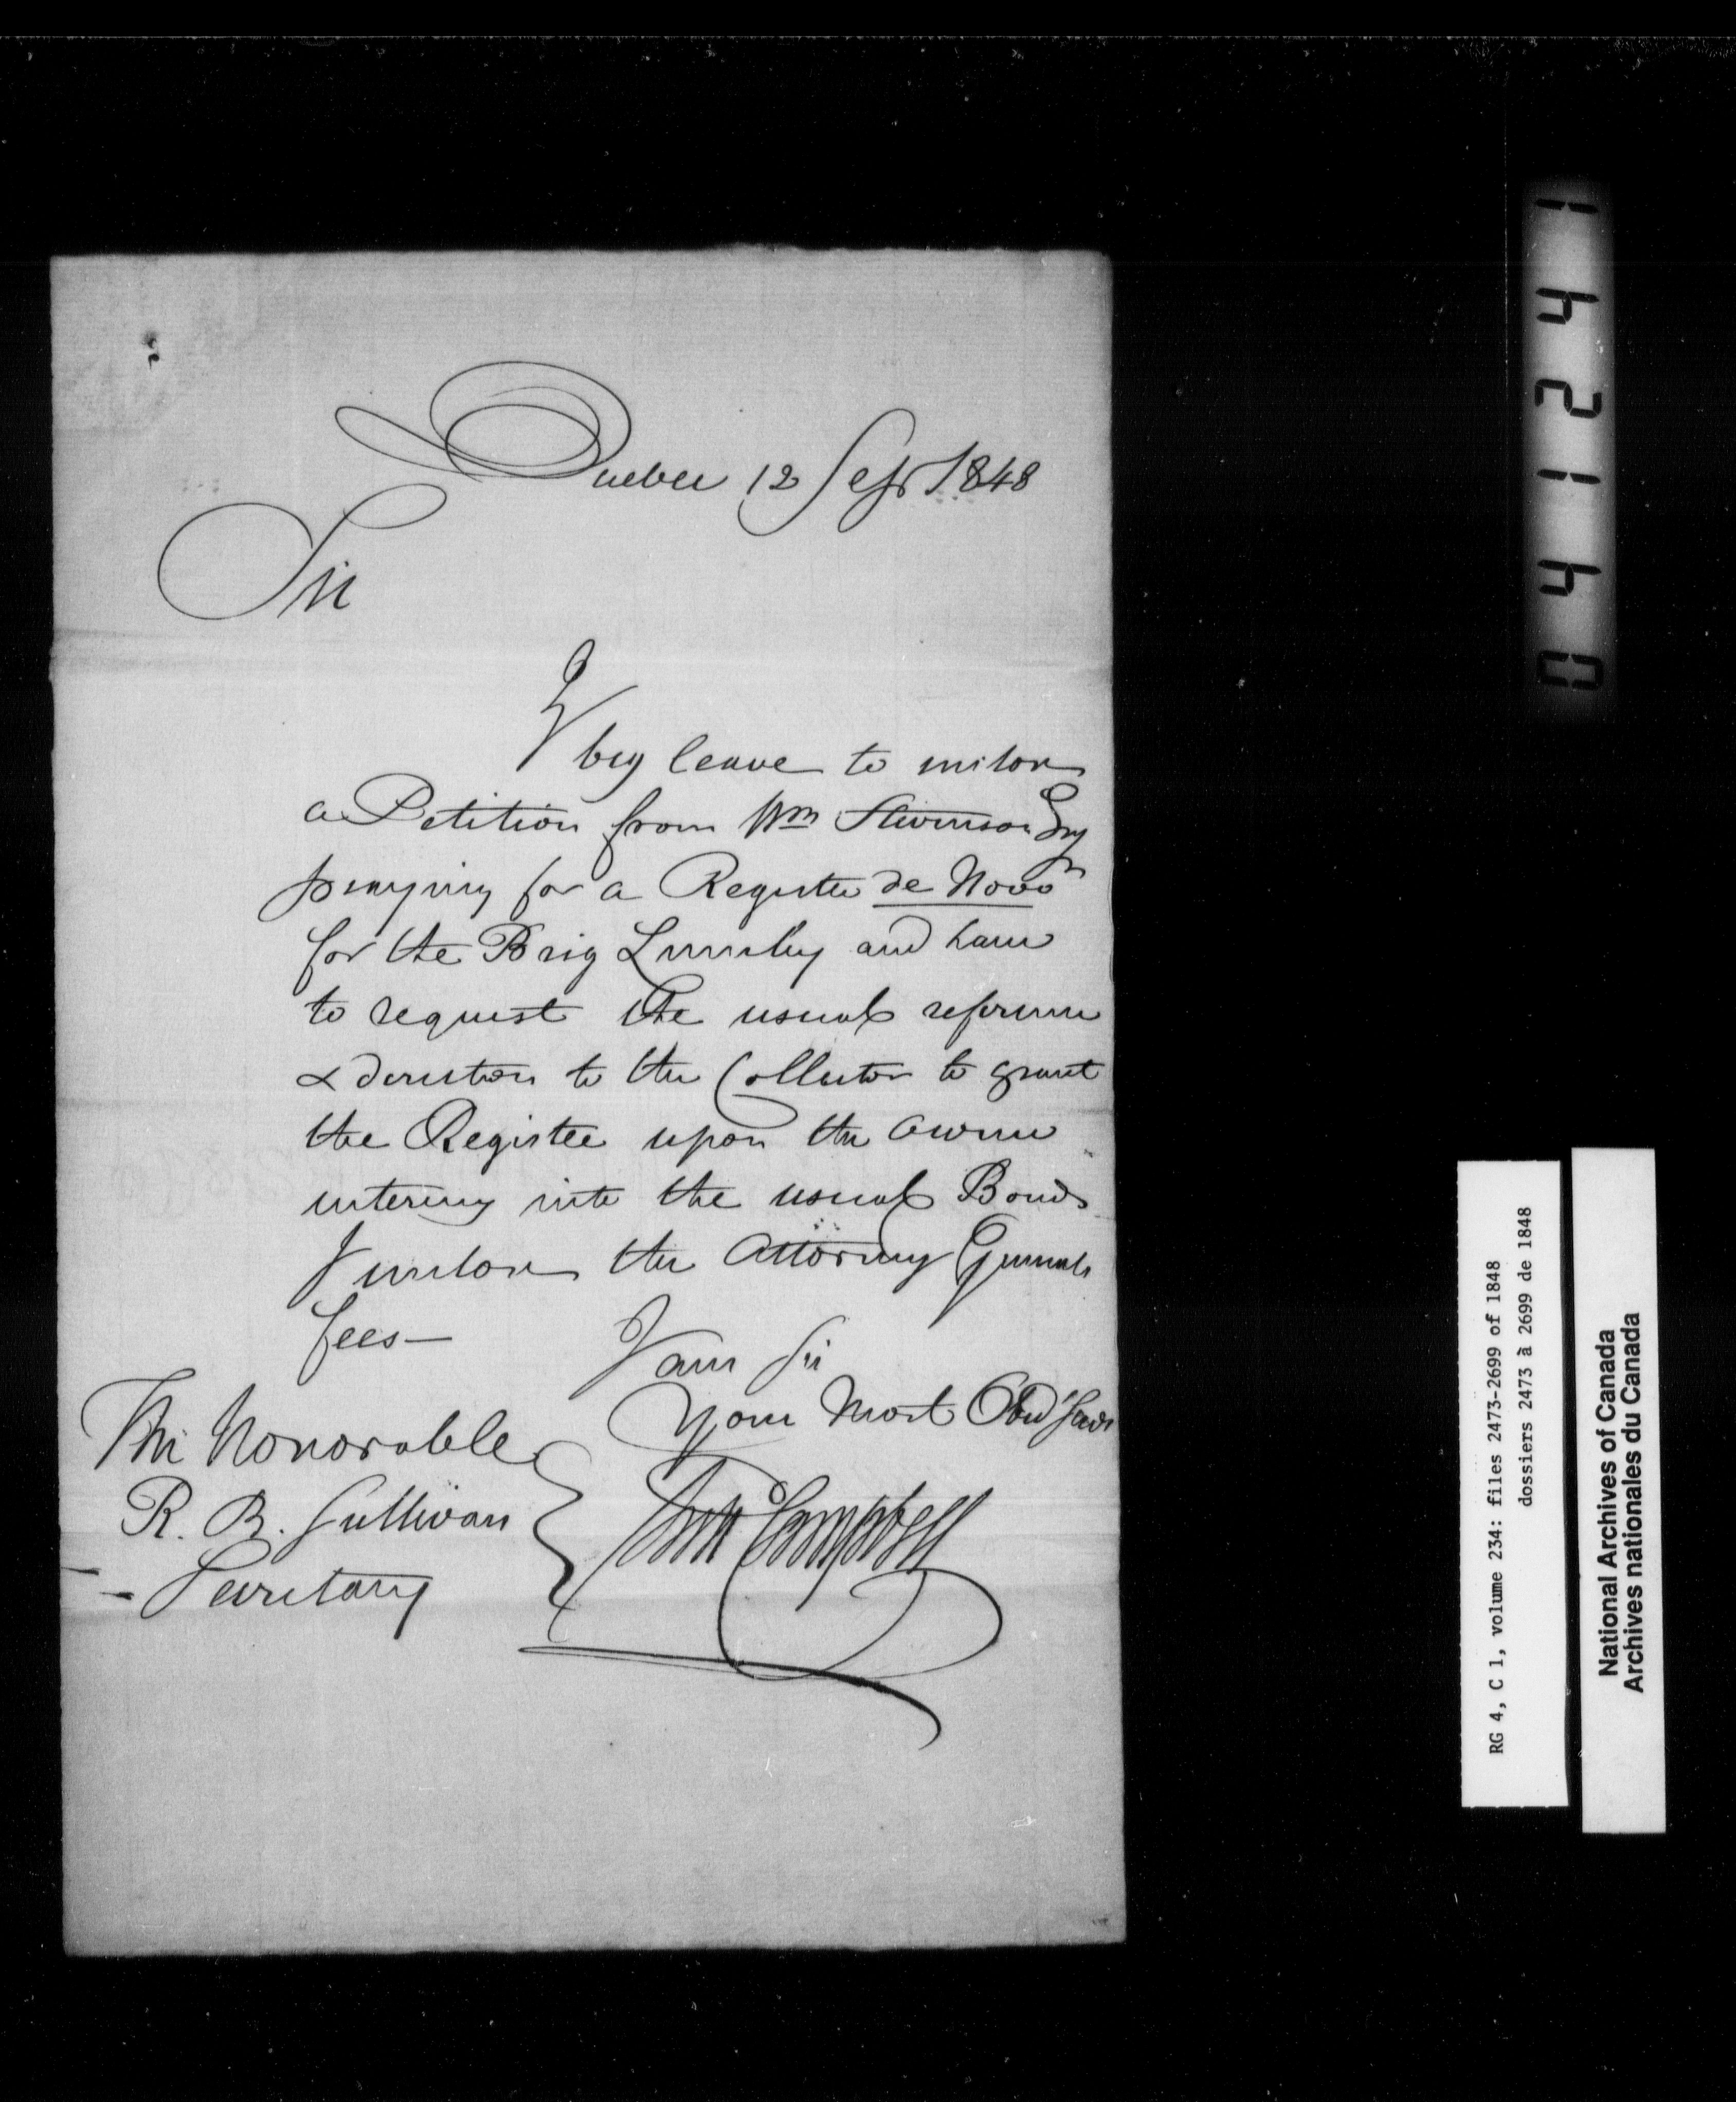 Quebec 12 Sept 1848
Sir
I beg leave to enclose
a Petition from Wm Stevenson Esqr
praying for a Register de Novo
for the Brig and have
to request the usual reference
& direction to the Collector to grant
the Register upon the owner
entering into the usual Bonds
I enclose the Attorney Generals
fees—
I am Sir
Your Most Obed Servt
Campbell
The Honorable
R. B. Sullivan
Secretary
041241
RG 4, C 1, volume 234: files 2473-2699 of 1848
dossiers 2473 à 2699 de 1848
National Archives of Canada
Archives nationales du Canada